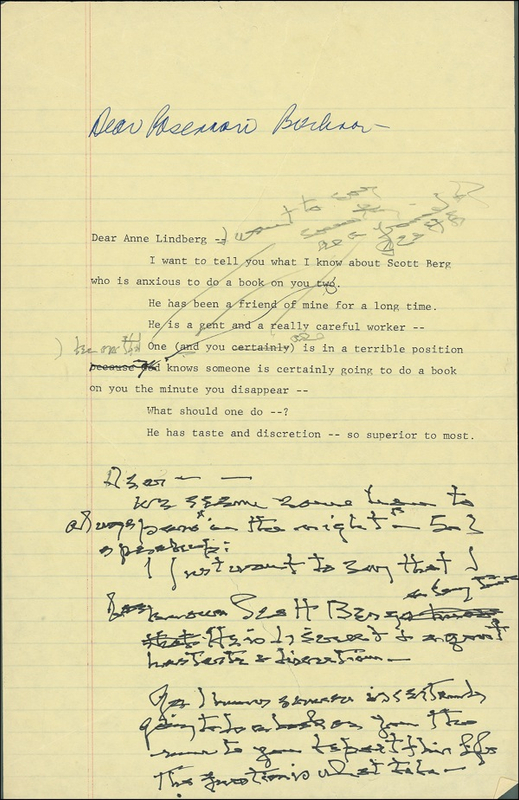 Dear
I want to say
Dear Anne Lindberg --
I want to tell you what I know about Scott Berg
who is anxious to do a book on you two.
He has been a friend of mine for a long time.
He is a gent and a really careful worker --
One (and you certainly) is in a terrible position
because God knows someone is certainly going to do a book
on you the minute you disappear --
What should one do --?
He has taste and discretion -- so superior to most.
Dear — —
We seem some how to
always pass in the night
I just want to say that I
known Scott Berg a long time
He is discreet & a gent
has taste & discretion —
going to do a book on you the
you depart this life
The question is what to do —